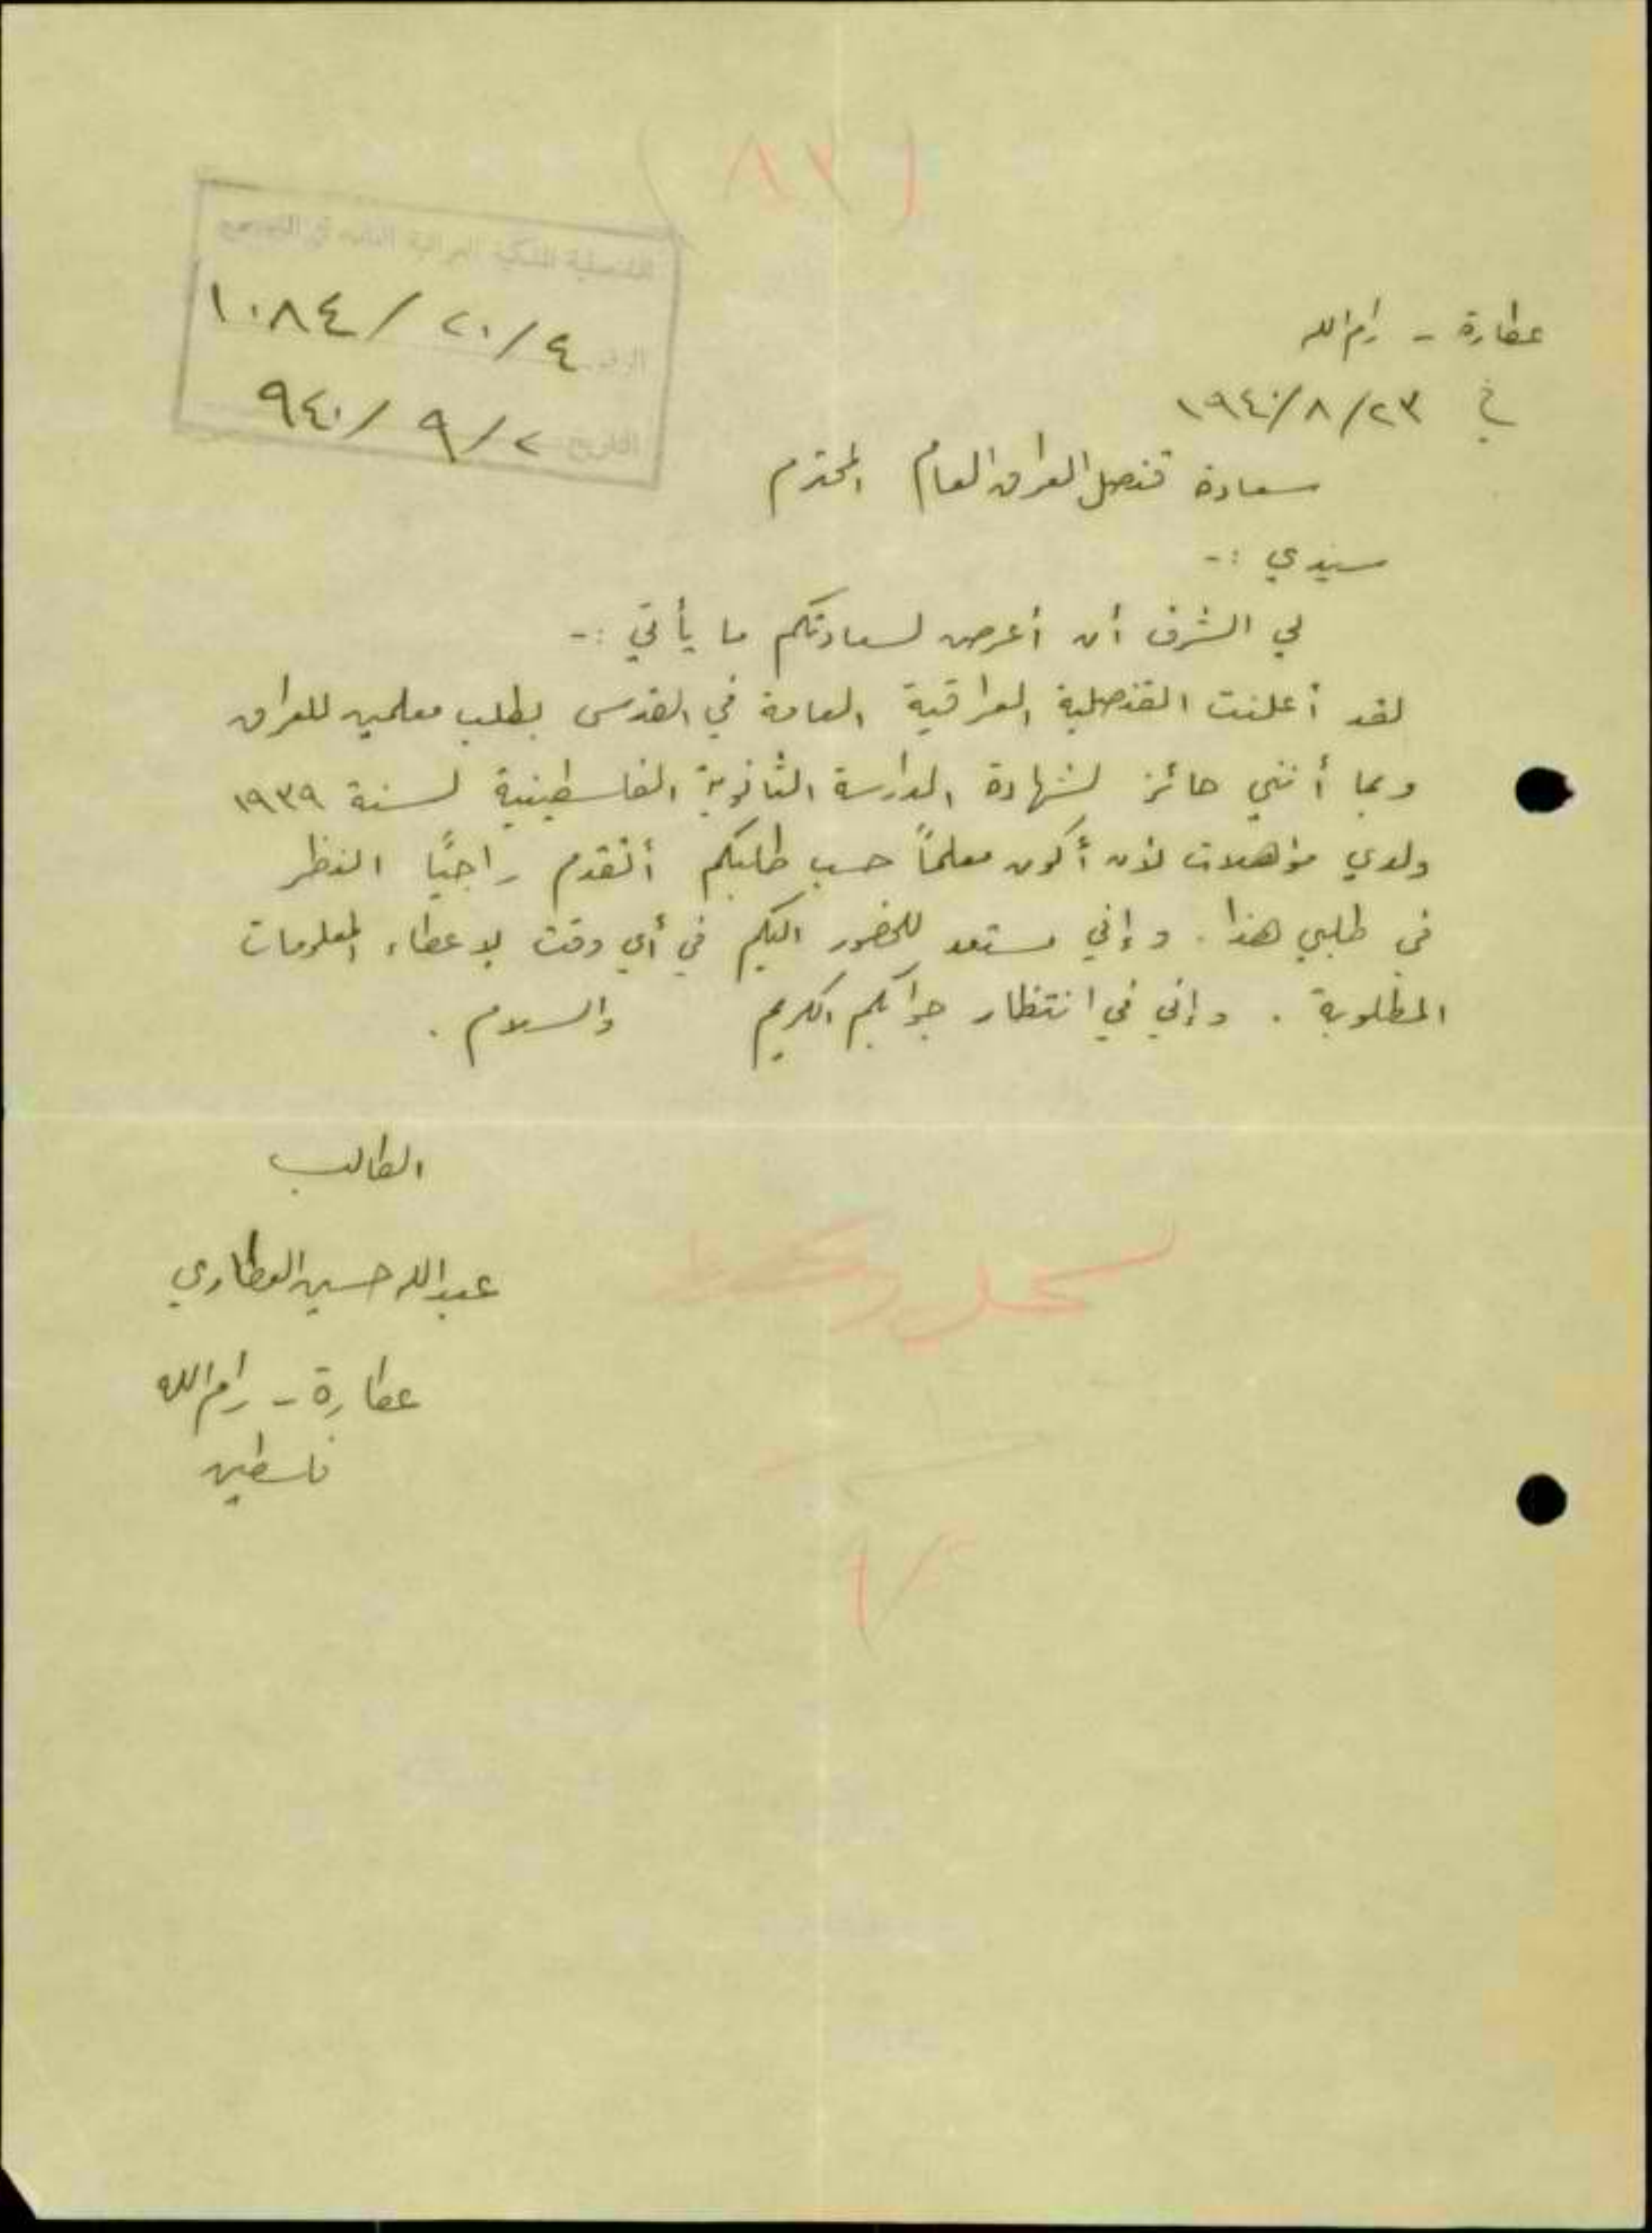 (٨٢)
القنصلية الملكية العراقية العامة في القدس
الرقم ٢٠/٤ / ١٠٨٤
التاريخ ٢ / ٩ / ٩٤٠
عطارة - رام الله
في ٢٣/٨/١٩٤٠
سعادة قنصل العراق العام المحترم
سيدي :-
لي الشرف أن أعرض لسعادتكم ما يأتي :-
لقد أعلنت القنصلية العراقية العامة في القدس بطلب معلمين للعراق
وبما أنني حائز لشهادة الدراسة الثانوية الفلسطينية لسنة ١٩٣٩
ولدي مؤهلات لأن أكون معلماً حسب طلبكم أتقدم راجيًا النظر
في طلبي هذا . وإني مستعد للحضور اليكم في أي وقت لإعطاء المعلومات
المطلوبة . وإني في انتظار جوابكم الكريم والسلام .
الطالب
عبد الله حسين العطاري
عطارة - رام الله
فلسطين